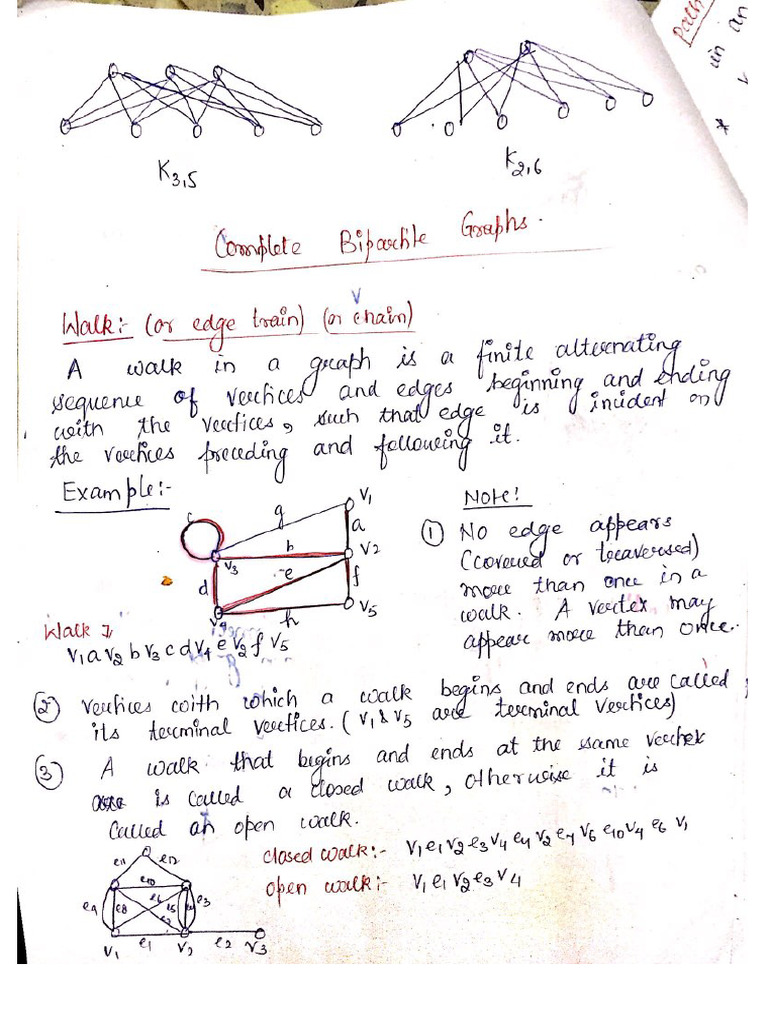 Path
in an
*
K3,5
K2,6
Complete Bipartite Graphs.
V
Walk:- (or edge train) (or chain)
A walk in a graph is a finite alternating
sequence of vertices and edges beginning and ending
with the vertices, such that edge is incident on
the vertices preceding and following it.
Example:-
c
g
V1
a
b
V2
V3
d
e
f
V4
h
V5
Note:
① No edge appears
(covered or traversed)
more than once in a
walk. A vertex may
appear more than once.
Walk I,
V1 a V2 b V3 c d V4 e V2 f V5
② Vertices with which a walk begins and ends are called
its terminal vertices. (V1 & V5 are terminal vertices)
③ A walk that begins and ends at the same vertex
is called a closed walk, otherwise it is
called an open walk.
closed walk:- V1 e1 V2 e3 V4 e4 V2 e7 V6 e10 V4 e6 V1
open walk:- V1 e1 V2 e3 V4
e11
e12
e10
e9
e8
e6
e3
V1
e1
V2
e2
V3